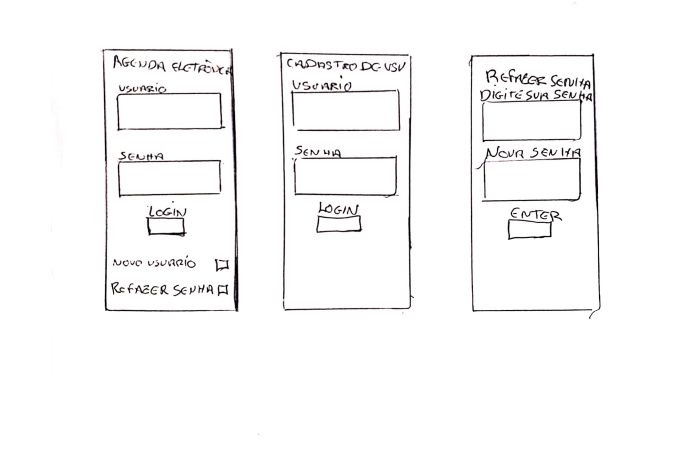 AGENDA ELETRÔNICA
USUARIO
SENHA
LOGIN
NOVO USUARIO
REFAZER SENHA
CADASTRO DE USU
USUARIO
SENHA
LOGIN
REFAZER SENHA
DIGITE SUA SENHA
NOVA SENHA
ENTER